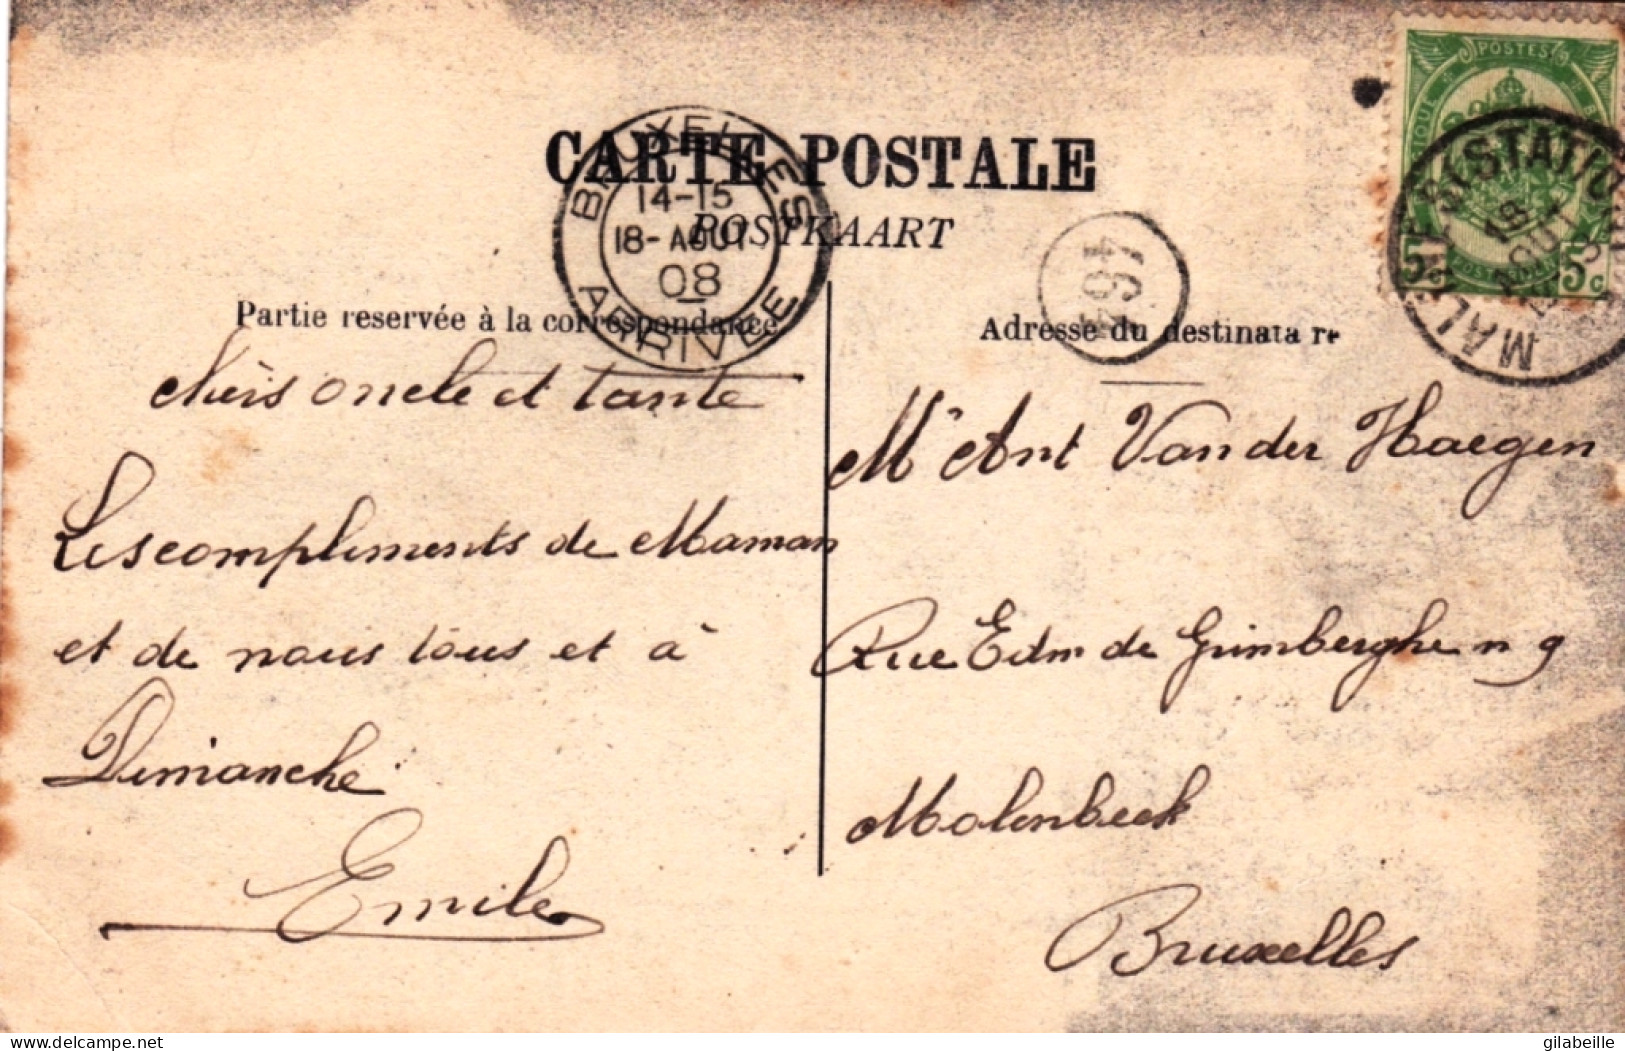 CARTE POSTALE
POSTKAART
BRUXELLES
14-15
18-AOUT
08
ARRIVÉE
Partie reservée à la correspondance
chèrs oncle et tante
Les compliments de Maman
et de nous tous et à
Dimanche
Emile
POSTES
5c
5c
(STATION)
18
AOUT
Adresse du destinata re
Mr Ant Van der Haegen
Rue Edm de Grimberghe n 9
Molenbeek
Bruxelles
delcampe.net
gilabeille